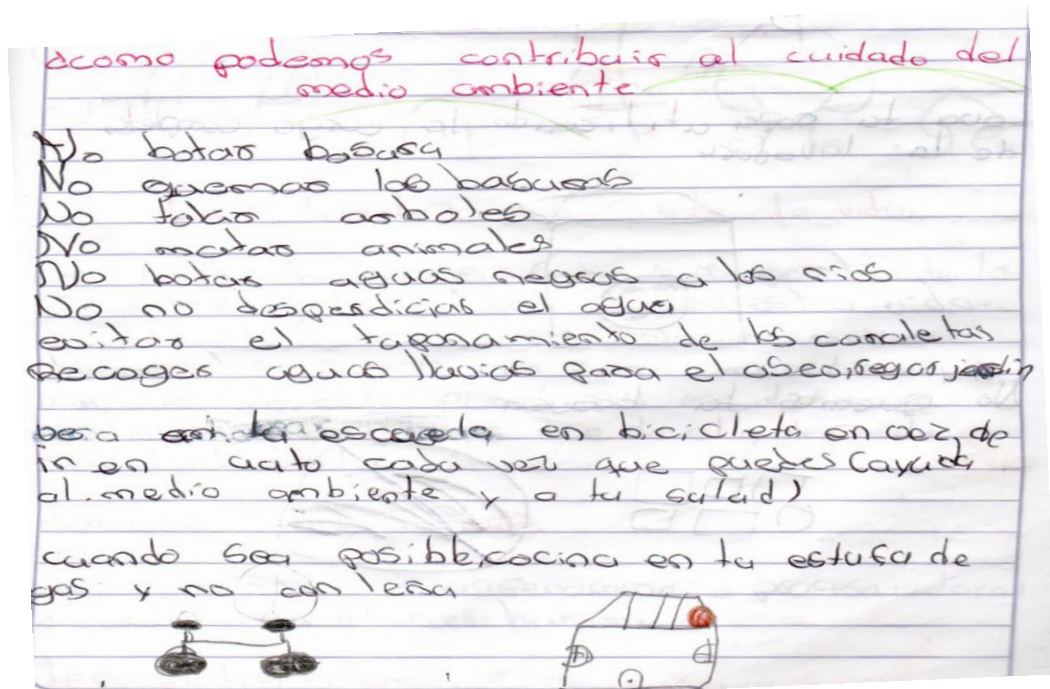 ¿como podemos contribuir al cuidado del
medio ambiente
No botar basura
No quemar las basuras
No talar arboles
No matar animales
No botar aguas negras a los rios
No no desperdiciar el agua
evitar el taponamiento de las canaletas
Recoger aguas lluvias para el aseo, regar jardin
a la escuela en bicicleta en vez de
ir en auto cada vez que puedes (ayuda
al medio ambiente y a tu salud)
cuando sea posible, cocina en tu estufa de
gas y no con leña